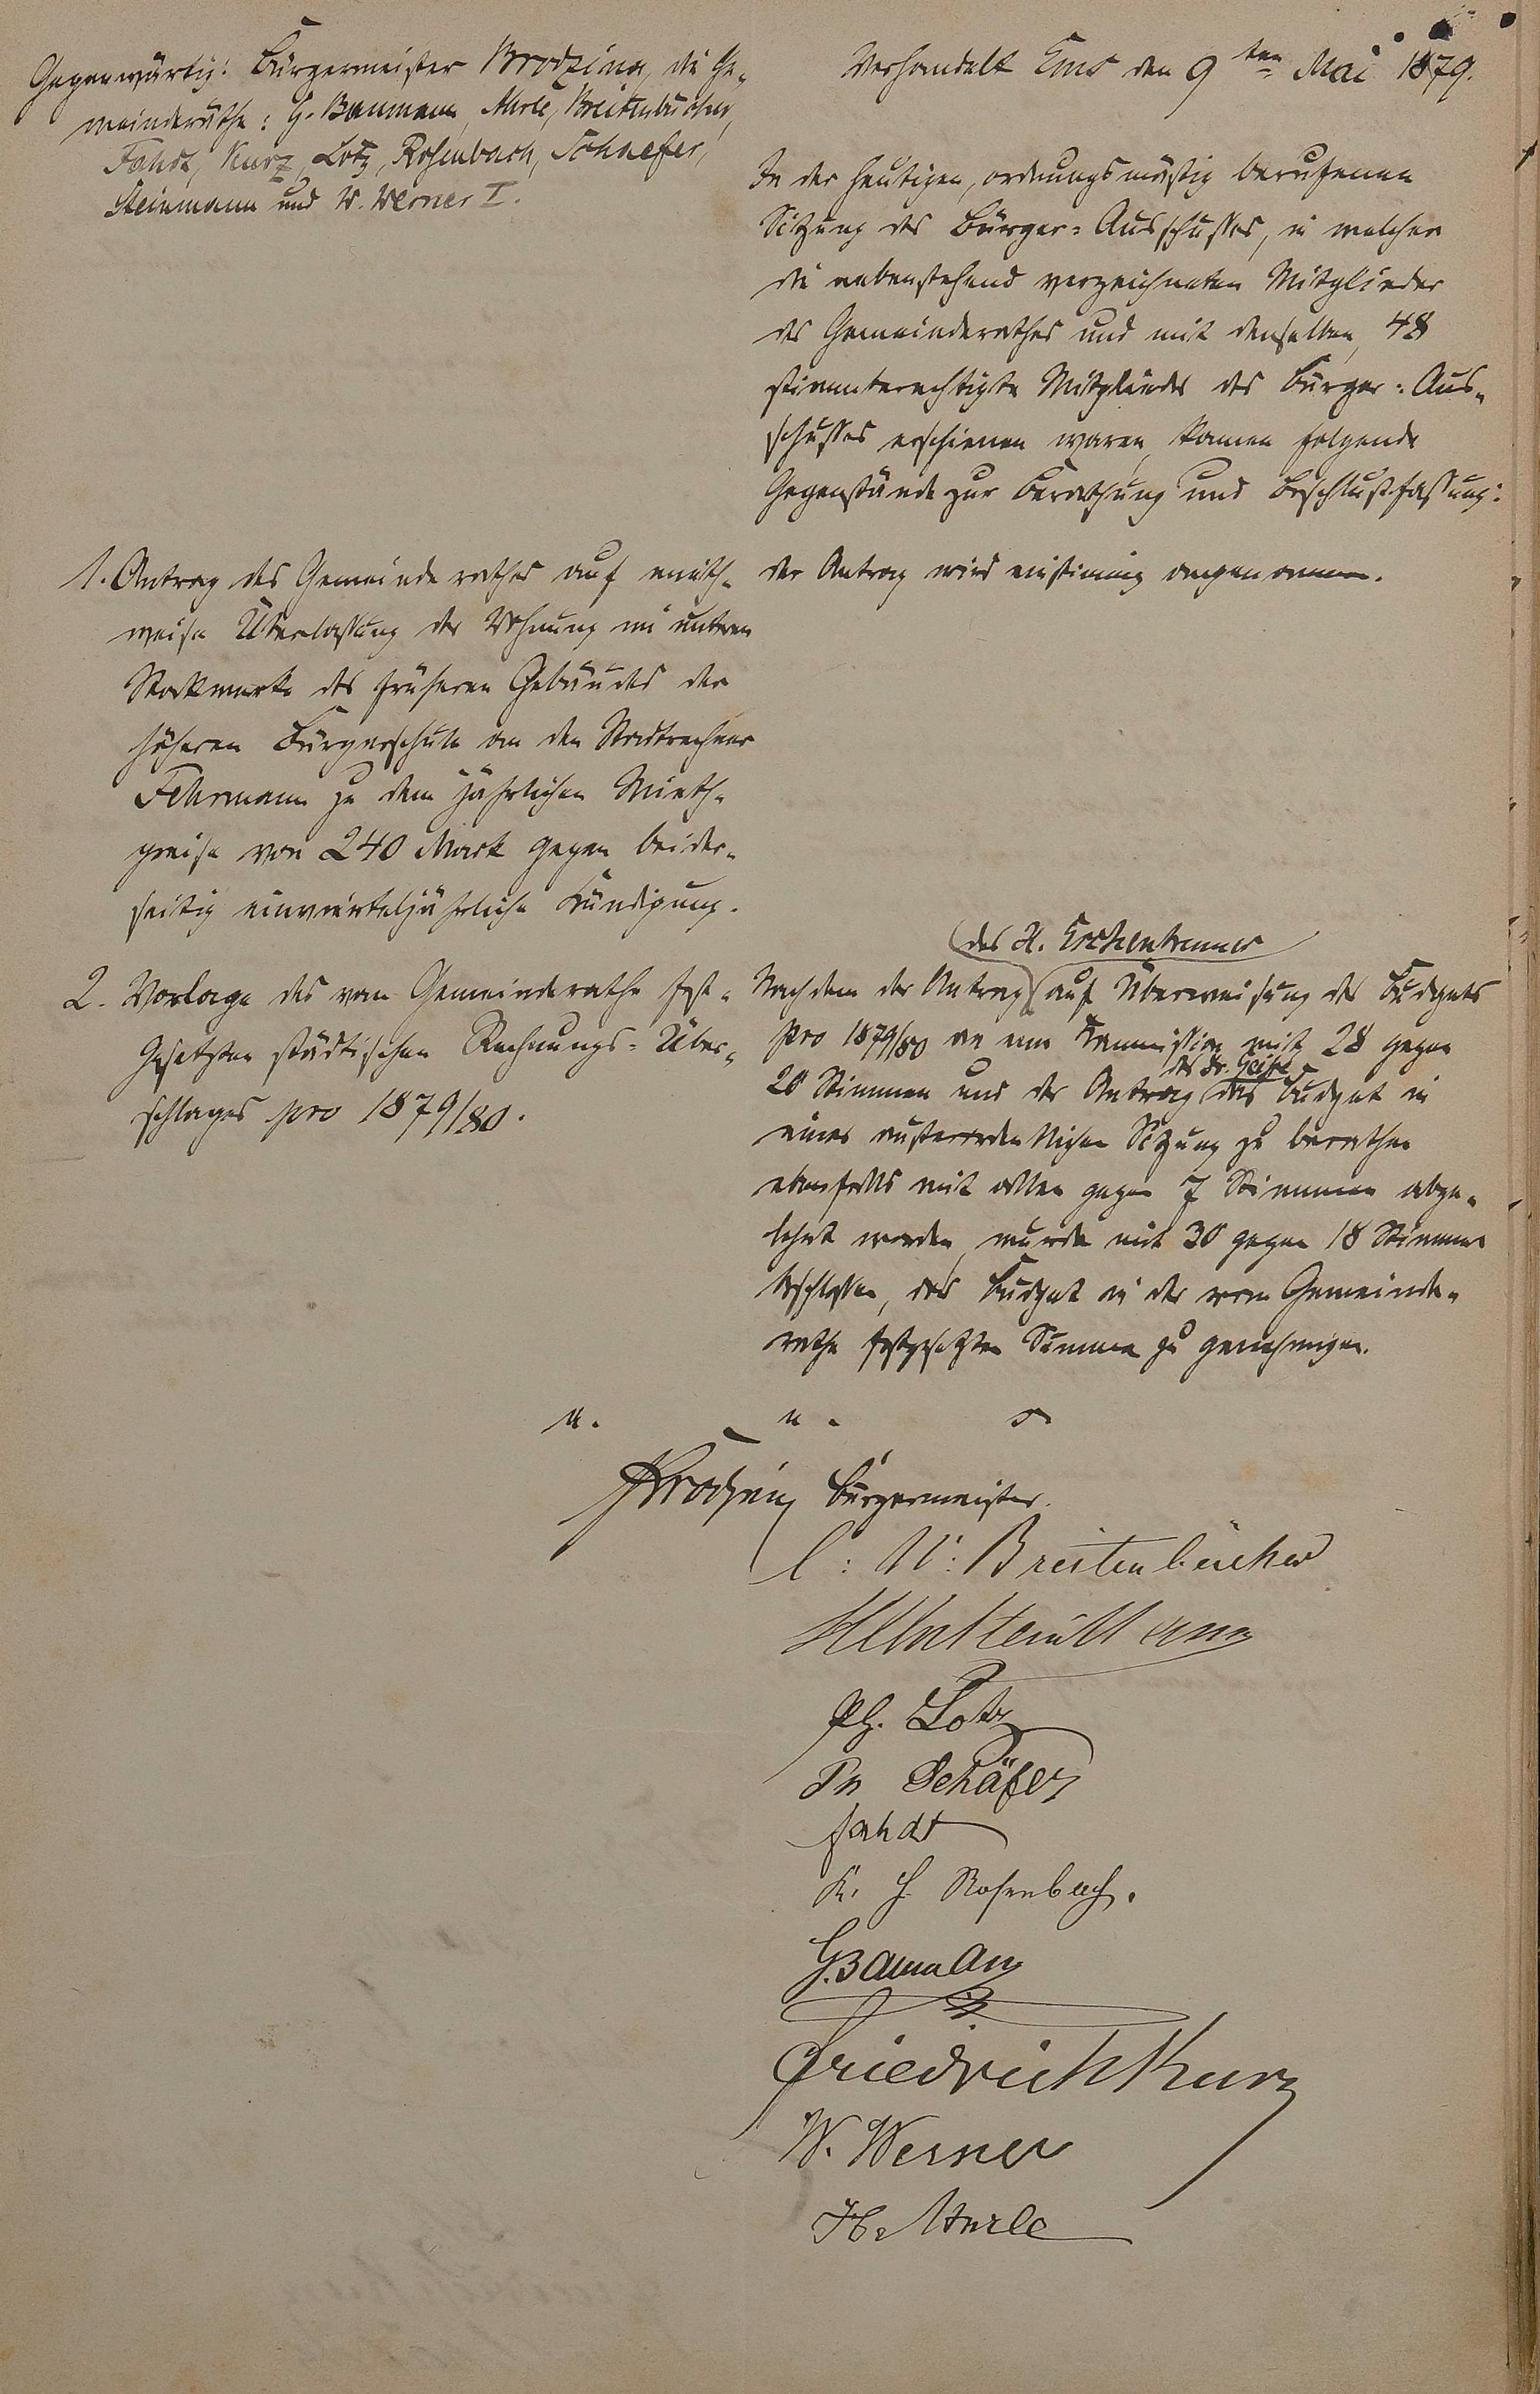 Gegenwärtig: Bürgermeister Brodzina, die Ge-
meinderäthe: G. Baumann, Merle, Breitenbücher,
Fahdt, Kurz, Lotz, Rosenbach, Schaefer,
Steinmann und W. Werner I.
Verhandelt Ems den 9ten Mai 1879.
In der heutigen, ordnungsmäßig berufenen
Sitzung des Bürger-Ausschusses, in welcher
die nebenstehend verzeichneten Mitglieder
des Gemeinderathes und mit denselben, 48
stimmberechtigte Mitglieder des Bürger-Aus-
schusses erschienen waren, kamen folgende
Gegenstände zur Berathung und Beschlußfassung:
1. Antrag des Gemeinderathes auf mieth-
weise Überlassung der Wohnung im unteren
Stockwerke des früheren Gebäudes der
höheren Bürgerschule an den Stadtrechner
Fehrmann zu dem jährlichen Mieth-
preise von 240 Mark gegen beider-
seitig einvierteljährliche Kündigung.
der Antrag wird einstimmig angenommen.
2. Vorlage des vom Gemeinderathe fest-
gesetzten städtischen Rechnungs-Über-
schlages pro 1879/80.
des H. Eschenbrenner
Nachdem der Antrag auf Überweisung des Budgets
pro 1879/80 an eine Kommission mit 28 gegen
des Dr. Geisse
20 Stimmen und der Antrag das Budget in
einer außerordentlichen Sitzung zu berathen
ebenfalls mit allen gegen 7 Stimmen abge-
lehnt worden, wurde mit 30 gegen 18 Stimmen
beschlossen, das Budget in der vom Gemeinde-
rathe festgesetzten Summe zu genehmigen.
a. u. s.
Brodzina Bürgermeister.
C: W: Breitenbücher
Steinmann
Ph. Lotz
Schäfer
Fahdt
K. H. Rosenbach.
G. Baumann
Friedrich Kurz
W. Werner
H. Merle